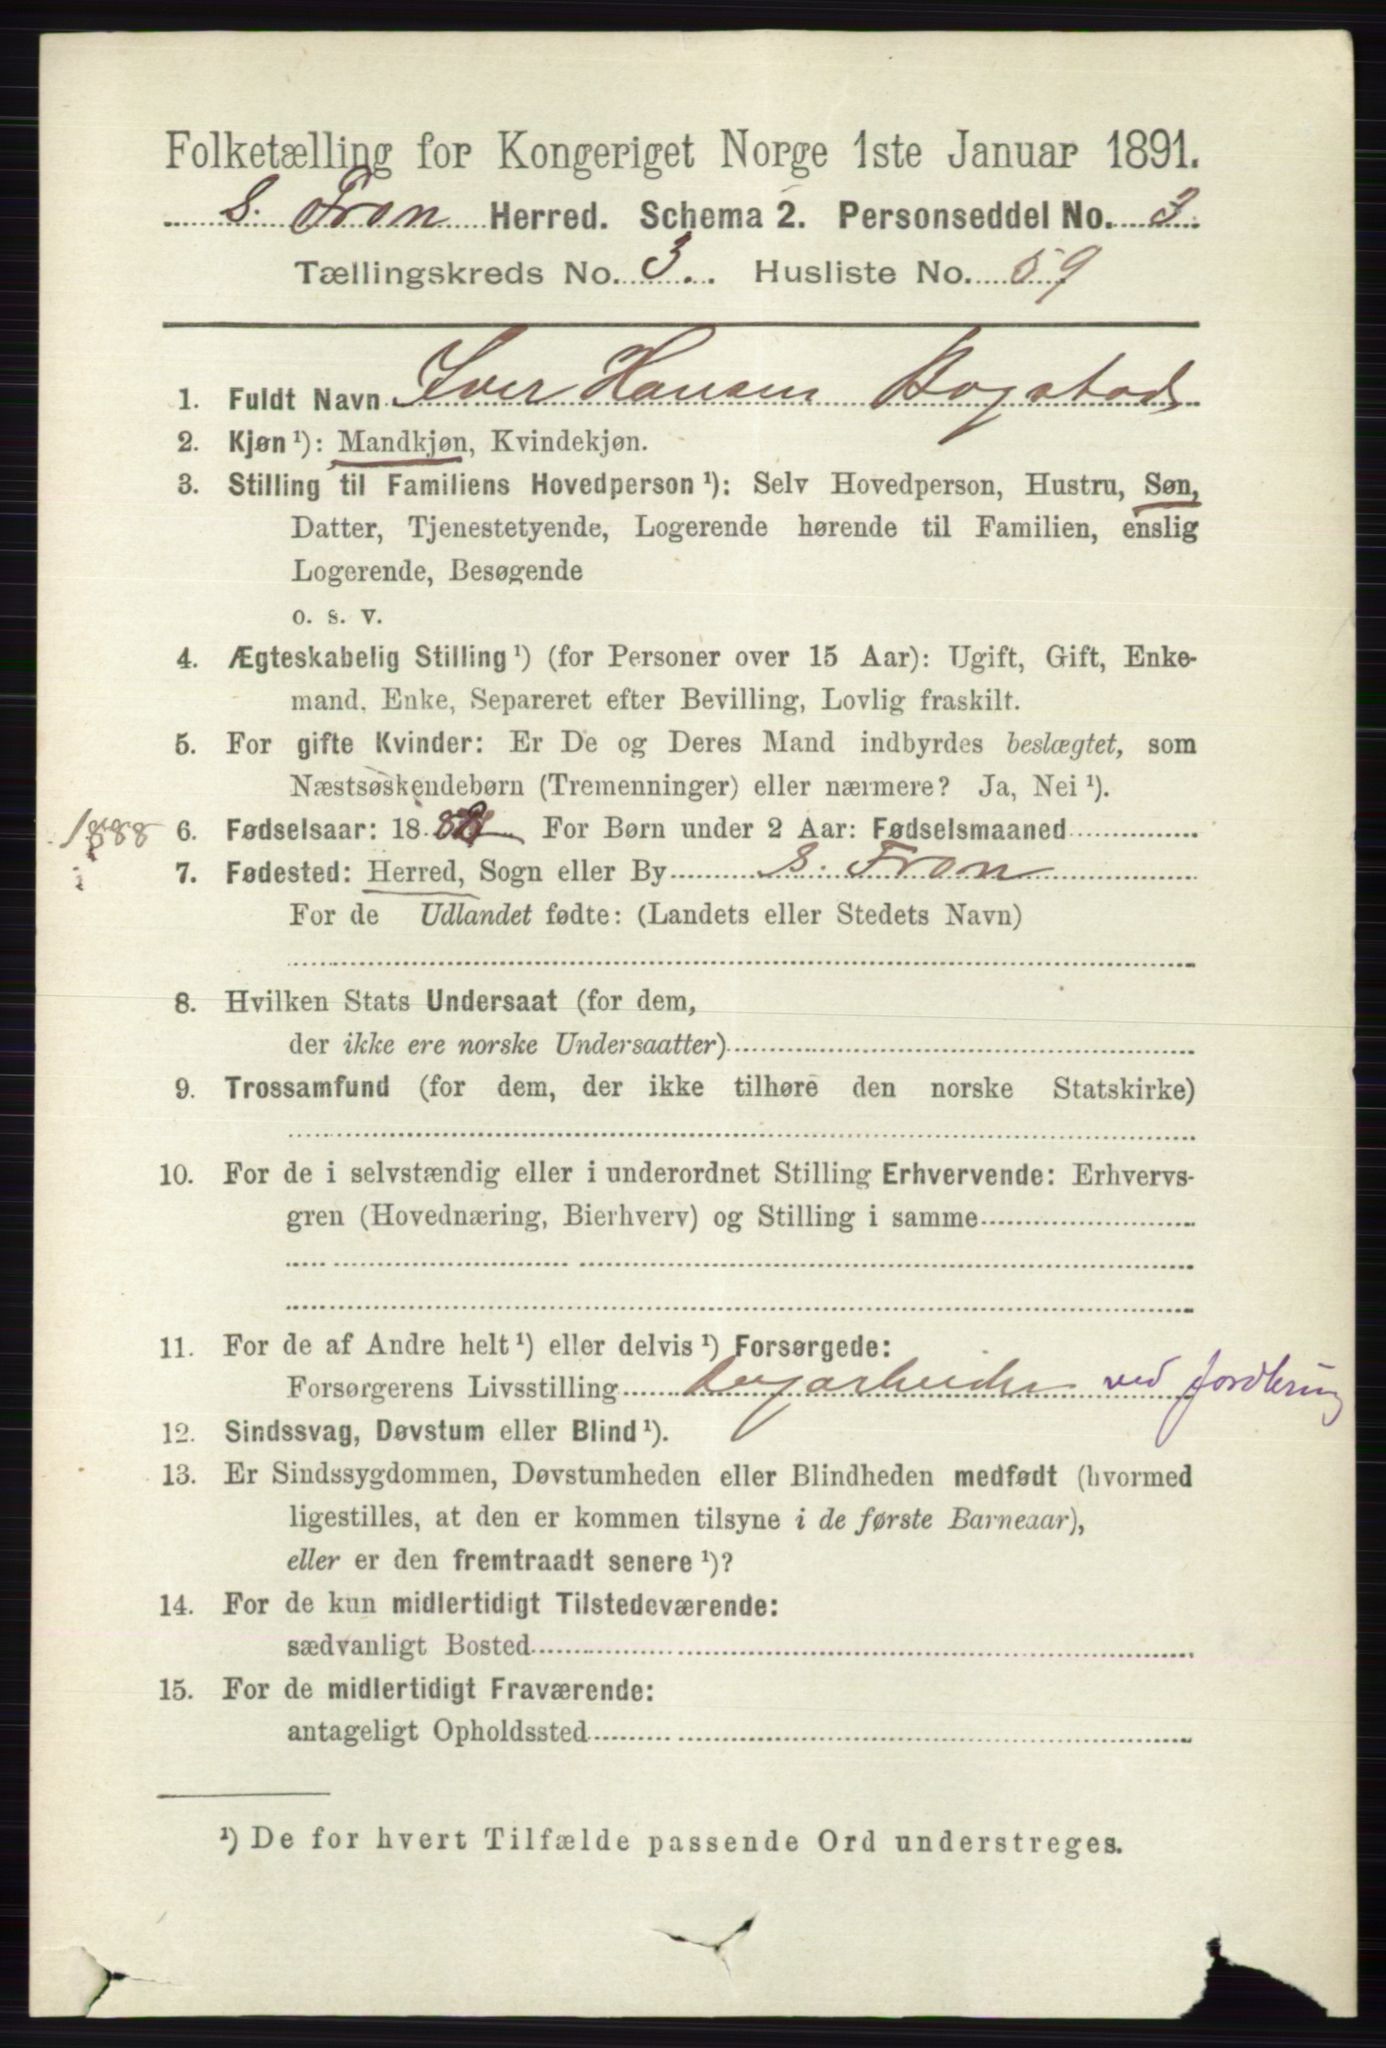 Folketælling for Kongeriget Norge 1ste Januar 1891.
S. Fron Herred. Schema 2. Personseddel No. 3.
Tællingskreds No. 3. Husliste No. 59
1. Fuldt Navn Iver Hansen
2. Kjøn ¹): Mandkjøn, Kvindekjøn.
3. Stilling til Familiens Hovedperson ¹): Selv Hovedperson, Hustru, Søn,
Datter, Tjenestetyende, Logerende hørende til Familien, enslig
Logerende, Besøgende
o. s. v.
4. Ægteskabelig Stilling ¹) (for Personer over 15 Aar): Ugift, Gift, Enke-
mand, Enke, Separeret efter Bevilling, Lovlig fraskilt.
5. For gifte Kvinder: Er De og Deres Mand indbyrdes beslægtet, som
Næstsøskendebørn (Tremenninger) eller nærmere? Ja, Nei ¹).
1888 6. Fødselsaar: 18 For Børn under 2 Aar: Fødselsmaaned
7. Fødested: Herred, Sogn eller By S. Fron
For de Udlandet fødte: (Landets eller Stedets Navn)
8. Hvilken Stats Undersaat (for dem,
der ikke ere norske Undersaatter)
9. Trossamfund (for dem, der ikke tilhøre den norske Statskirke)
10. For de i selvstændig eller i underordnet Stilling Erhvervende: Erhvervs-
gren (Hovednæring, Bierhverv) og Stilling i samme
11. For de af Andre helt ¹) eller delvis ¹) Forsørgede:
Forsørgerens Livsstilling ved
12. Sindssvag, Døvstum eller Blind ¹).
13. Er Sindssygdommen, Døvstumheden eller Blindheden medfødt (hvormed
ligestilles, at den er kommen tilsyne i de første Barneaar),
eller er den fremtraadt senere ¹)?
14. For de kun midlertidigt Tilstedeværende:
sædvanligt Bosted
15. For de midlertidigt Fraværende:
antageligt Opholdssted
¹) De for hvert Tilfælde passende Ord understreges.